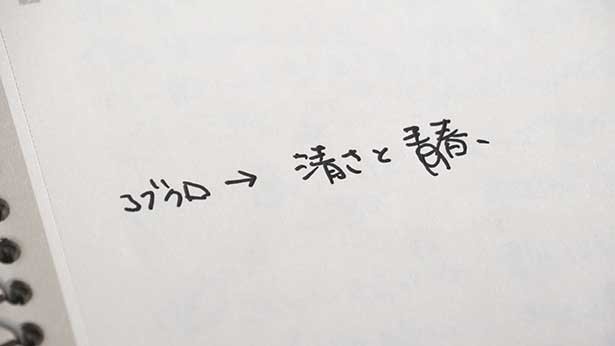 コブクロ → 清さと青春、